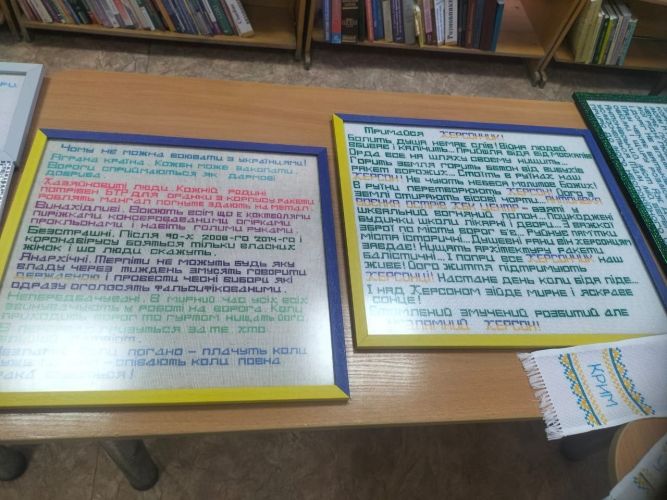 Чому не можна воювати з українцями!
Аграна країна. Кожен може закопати.
Вороги сприймаються як дармові
добрива.
Хазяйновиті люди. Кожній родині
потрібен БТР для оранки з корпусу ракети
роблять мангал погнуте здають на метал
Винахідливі. Воюють всім ще й коктейлями
пиріжками консервованими огірками
прокльонами навіть голими руками.
Безстрашні. Після 90-х 2008-го 2014-го і
коронавірусу бояться тільки власних
жінок і що люди скажуть.
Анархічні. Терпіти не можуть будь яку
владу через тиждень змусять говорити
і провести чесні вибори які
одразу оголосять фальсифікованими.
Непередбачувані. В мирний час усіх
у роботі на ворога. Коли
приходить ворог то гуртом нищать його.
за те хто
погано - плачуть коли
співають коли повна
Тримайся Херсонщик!
Болить душа немає слів! Війна людей
вбиває і калічить... Прийшла біда від москалів
Орда все на шляху своєму нищить...
Горить земля горить бетон від вибухів
ракет ворожих... Стоїть в руїнах наш
не чують небеса молитов Божих!
В руїни перетворюють Херсон! Його з
землі стирають бісові чорти...
шквальний вогняний полон... Пошкоджені
будинки школи лікарні і двори... З важкої
зброї по місту ворог б'є... Руйнує пам'ятки
міста історичні... Душевні рани він херсонцям
завдає! Нищать архітектуру ракети
балістичні... І попри все наш
живе! Його життя підтримують
Настане день коли біда піде...
І над Херсоном зійде мирне і яскраве
сонце!
Стомлений змучений розбитий але
Херсон!
КРИМ